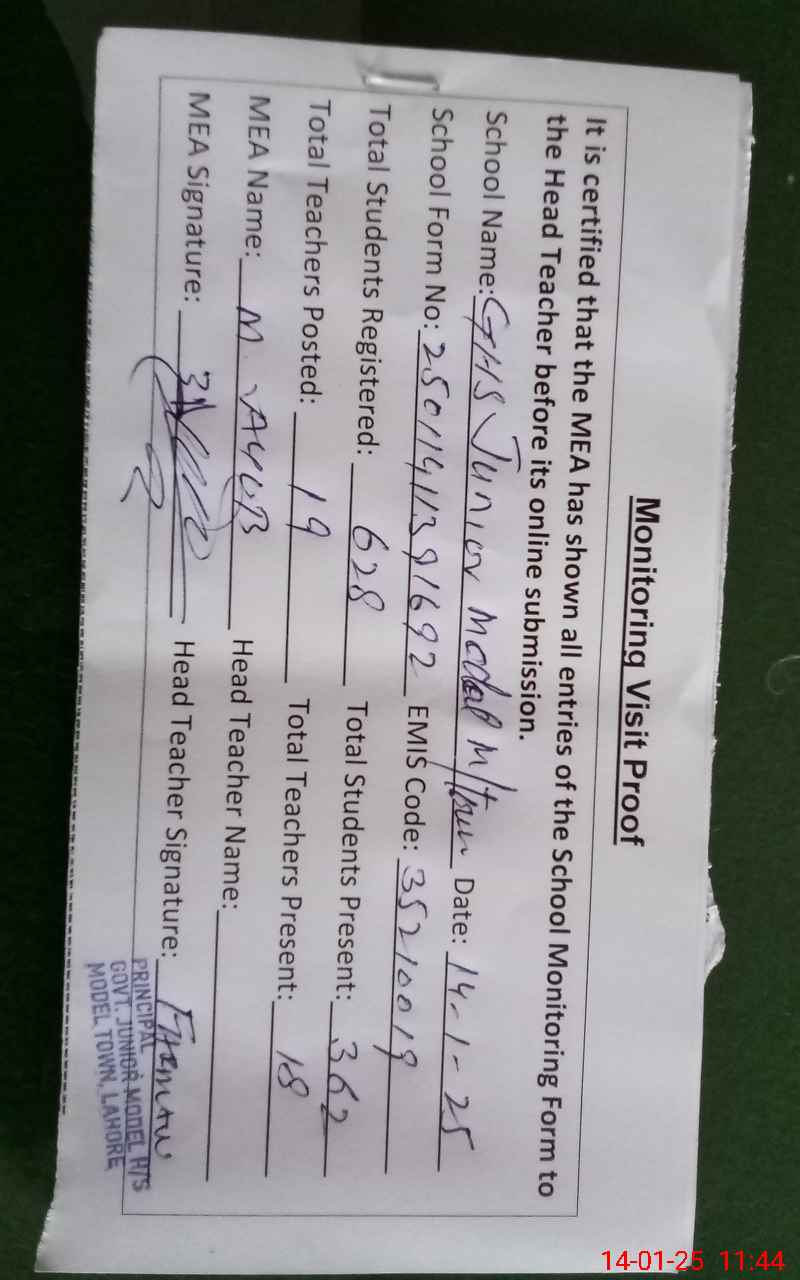 Monitoring Visit Proof
It is certified that the MEA has shown all entries of the School Monitoring Form to
the Head Teacher before its online submission.
School Name: GHS Junior Model M/Town Date: 14-1-25
School Form No: 25011411391692 EMIS Code: 35210019
Total Students Registered: 628 Total Students Present: 362
Total Teachers Posted: 19 Total Teachers Present: 18
MEA Name: M. AYUB Head Teacher Name:
MEA Signature: Head Teacher Signature:
PRINCIPAL
GOVT. JUNIOR MODEL H/S
MODEL TOWN, LAHORE
14-01-25 11:44